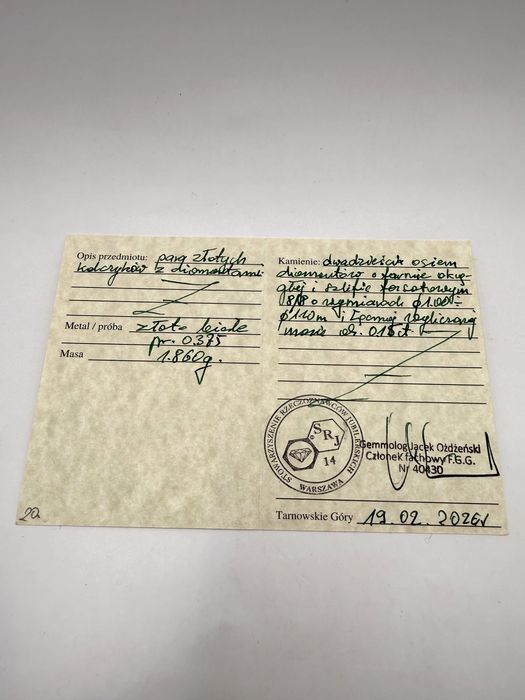 Opis przedmiotu: para złotych
kolczyków z diamentami
Metal / próba złoto białe
pr. 0.375
Masa 1.860g.
20
Kamienie: dwadzieścia osiem
diamentów o formie okrą-
głej i szlifie fasetowym
8/8 o wymiarach ø1.00÷
ø1.10m i łącznej wyliczonej
masie ok. 0.15ct.
STOWARZYSZENIE RZECZOZNAWCÓW JUBILERSKICH
SRJ
14
WARSZAWA
Gemmolog Jacek Ożdżeński
Członek fachowy F.G.G.
Nr 40430
Tarnowskie Góry 19.02.2026r